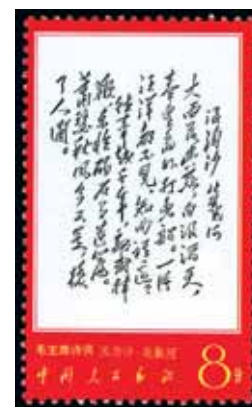 浪淘沙 北戴河
大雨落幽燕,白浪滔天,
秦皇島外打魚船。一片
汪洋都不見,知向誰邊
往事越千年,魏武揮
鞭,東臨碣石有遺篇。
蕭瑟秋風今又是,換
了人間。
毛主席诗词 浪淘沙·北戴河
中国人民邮政 8分